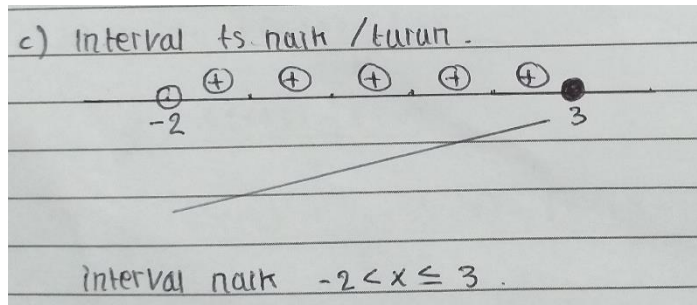 c) Interval fs. naik / turun.
⊕ ⊕ ⊕ ⊕ ⊕
-2 3
interval naik -2 < x ≤ 3.